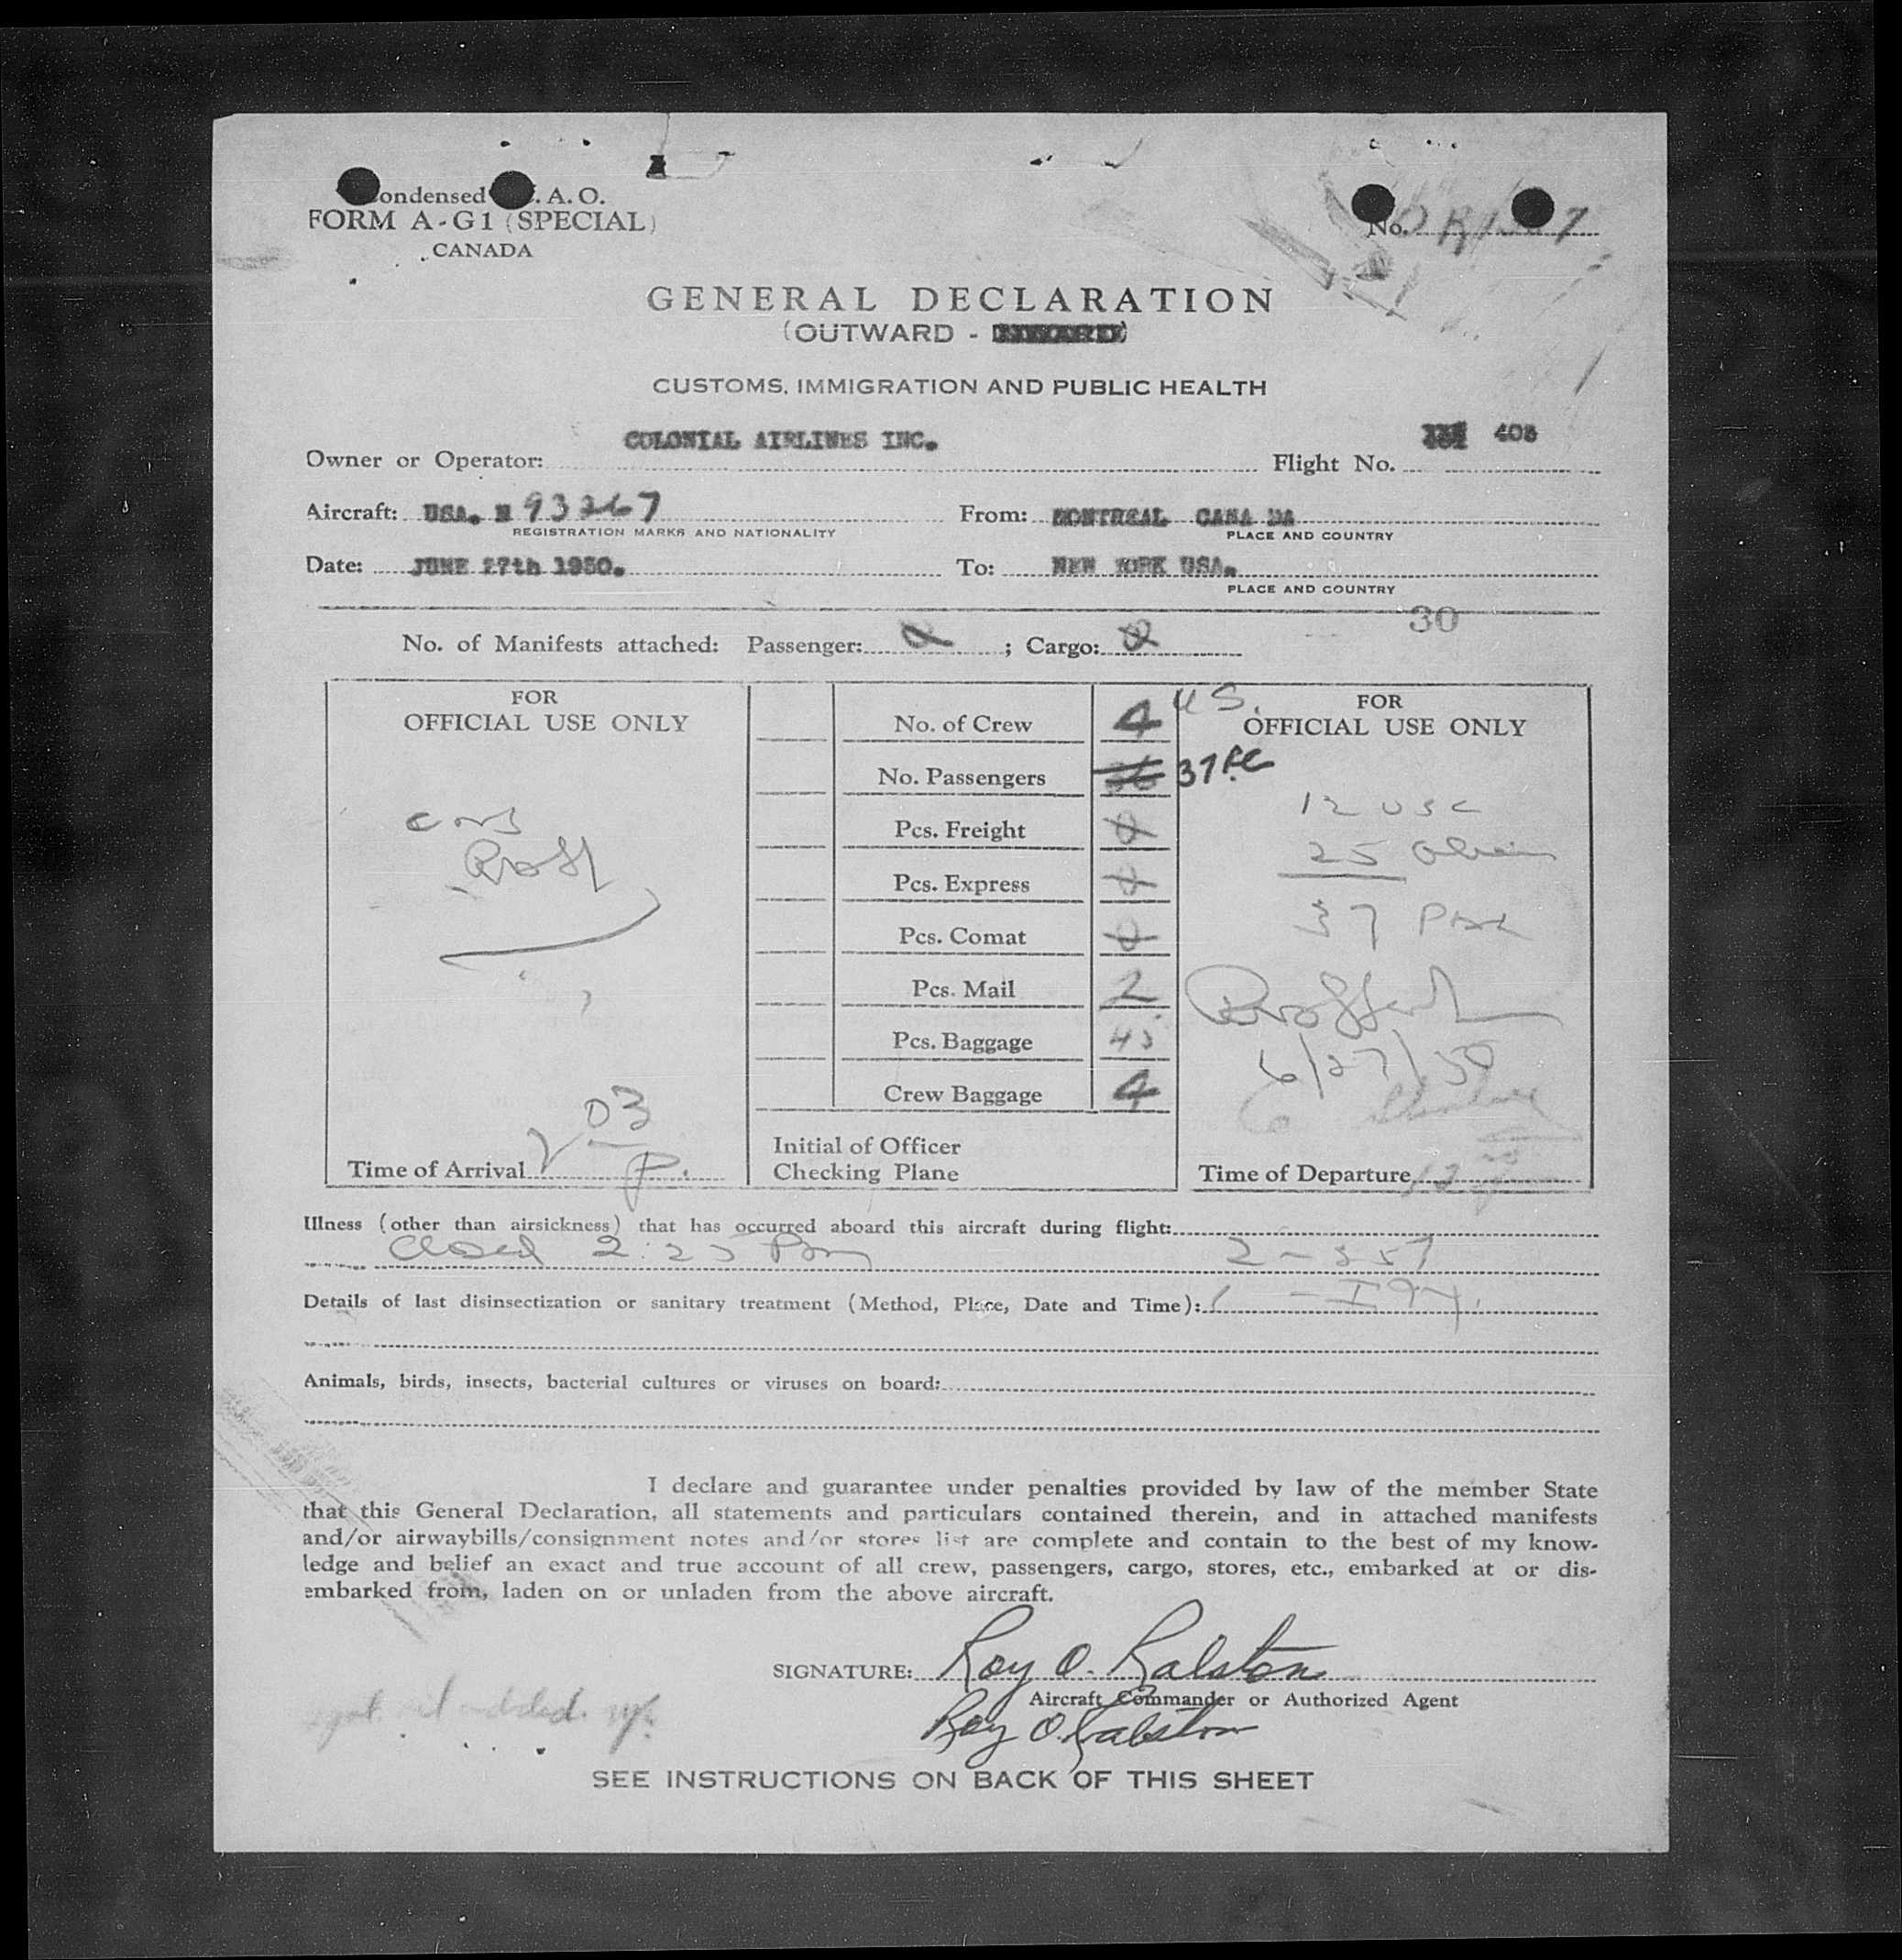 Condensed I.C.A.O.
FORM A-G1 (SPECIAL)
CANADA
No.
GENERAL DECLARATION
(OUTWARD - INWARD)
CUSTOMS, IMMIGRATION AND PUBLIC HEALTH
Owner or Operator: COLONIAL AIRLINES INC. Flight No. 403
Aircraft: USA. N 93267 From: MONTREAL CANA DA
REGISTRATION MARKS AND NATIONALITY PLACE AND COUNTRY
Date: JUNE 27th 1950. To: NEW YORK USA.
PLACE AND COUNTRY
30
No. of Manifests attached: Passenger: 2 ; Cargo: 0
FOR
OFFICIAL USE ONLY
03
2 P.
Time of Arrival
No. of Crew 4 US.
No. Passengers 36 37
Pcs. Freight 0
Pcs. Express 0
Pcs. Comat 0
Pcs. Mail 2
Pcs. Baggage 45
Crew Baggage 4
Initial of Officer
Checking Plane
FOR
OFFICIAL USE ONLY
12 USC
25 Alien
37 Pax
6/27/50
Time of Departure
Illness (other than airsickness) that has occurred aboard this aircraft during flight:
Closed 2:25 Pm 2-557
Details of last disinsectization or sanitary treatment (Method, Place, Date and Time):
Animals, birds, insects, bacterial cultures or viruses on board:
I declare and guarantee under penalties provided by law of the member State
that this General Declaration, all statements and particulars contained therein, and in attached manifests
and/or airwaybills/consignment notes and/or stores list are complete and contain to the best of my know-
ledge and belief an exact and true account of all crew, passengers, cargo, stores, etc., embarked at or dis-
embarked from, laden on or unladen from the above aircraft.
SIGNATURE: Roy O. Ralston
Aircraft Commander or Authorized Agent
Roy O. Ralston
SEE INSTRUCTIONS ON BACK OF THIS SHEET